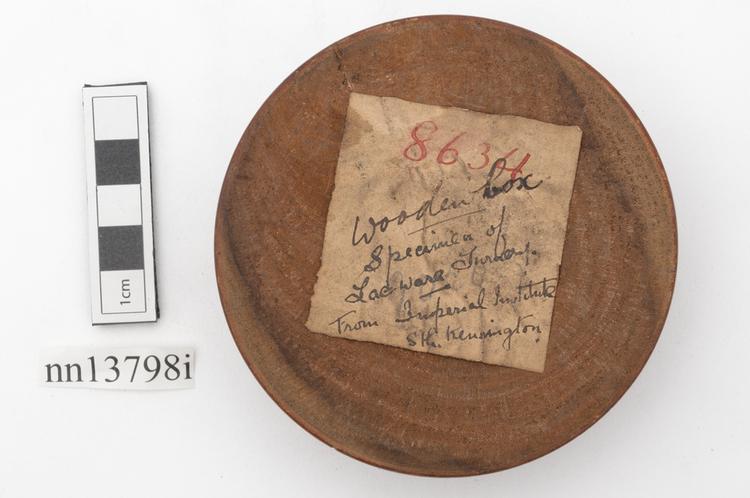 8634
Wooden box
Specimen of
Lac ware Turnery.
From Imperial Institute
Sth. Kensington.
1cm
nn13798i